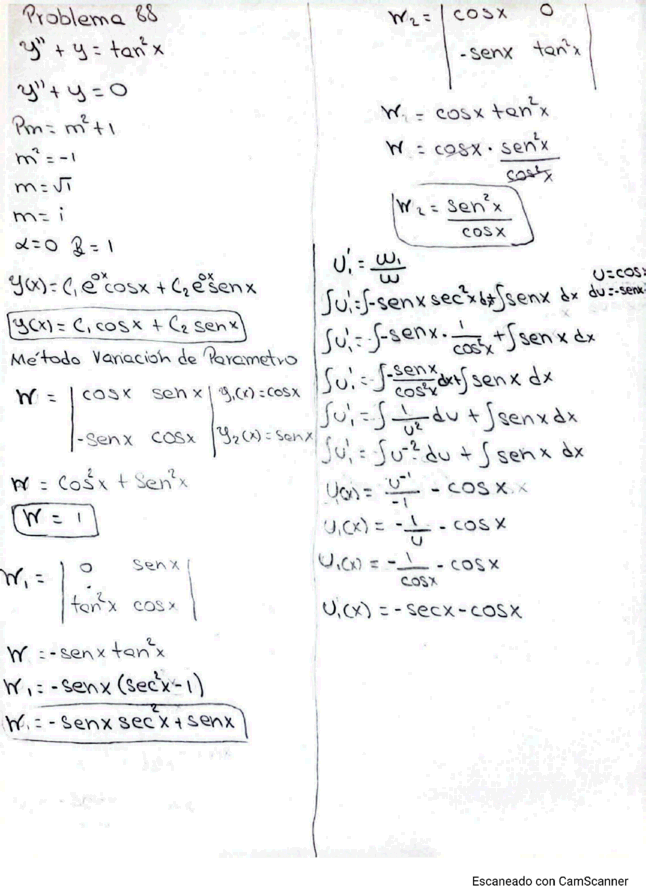 Problema 88
y'' + y = tan²x
y'' + y = 0
Pm = m² + 1
m² = -1
m = √i
m = i
α = 0 β = 1
y(x) = C₁e⁰ˣcosx + C₂e⁰ˣsenx
y(x) = C₁ cosx + C₂ senx
Método Variación de Parametro
W = | cosx senx | y₁(x) = cosx
| -senx cosx | y₂(x) = senx
W = Cos²x + Sen²x
W = 1
W₁ = | 0 senx |
| tan²x cosx |
W = -senx tan²x
W₁ = -senx (sec²x - 1)
W₁ = -senx sec²x + senx
W₂ = | cosx 0 |
| -senx tan²x |
W₂ = cosx tan²x
W = cosx · sen²x / cos²x
W₂ = sen²x / cosx
U₁' = W₁ / W
∫U₁' = ∫-senx sec²x dx + ∫senx dx
U = cosx
du = -senx
∫U₁' = ∫-senx · 1/cos²x + ∫senx dx
∫U₁' = ∫-senx/cos²x dx + ∫senx dx
∫U₁' = ∫ 1/U² du + ∫senx dx
∫U₁' = ∫U⁻² du + ∫senx dx
U(x) = U⁻¹/-1 - cosx
U₁(x) = -1/U - cosx
U₁(x) = -1/cosx - cosx
U₁(x) = -secx - cosx
Escaneado con CamScanner